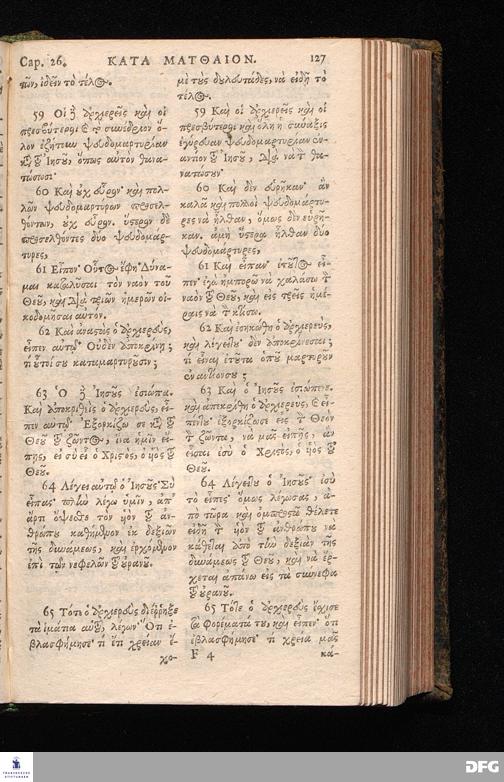 Cap. 26. ΚΑΤΑ ΜΑΤΘΑΙΟΝ. 127
τῶν, ἰδεῖν τὸ τέλος.
59 Οἱ δὲ ἀρχιερεῖς καὶ οἱ
πρεσβύτεροι καὶ τὸ συνέδριον ὅ-
λον ἐζήτουν ψευδομαρτυρίαν
κατὰ τοῦ Ἰησοῦ, ὅπως αὐτὸν θανα-
τώσωσι·
60 Καὶ οὐχ εὗρον· καὶ πολ-
λῶν ψευδομαρτύρων προσελ-
θόντων, οὐχ εὗρον. ὕστερον δὲ
προσελθόντες δύο ψευδομάρ-
τυρες,
61 Εἶπον· Οὗτος ἔφη· Δύνα-
μαι καταλῦσαι τὸν ναὸν τοῦ
Θεοῦ, καὶ διὰ τριῶν ἡμερῶν οἰ-
κοδομῆσαι αὐτόν.
62 Καὶ ἀναστὰς ὁ ἀρχιερεὺς,
εἶπεν αὐτῷ· Οὐδὲν ἀποκρίνῃ;
τί οὗτοί σου καταμαρτυροῦσιν;
63 Ὁ δὲ Ἰησοῦς ἐσιώπα.
Καὶ ἀποκριθεὶς ὁ ἀρχιερεὺς, εἶ-
πεν αὐτῷ· Ἐξορκίζω σε κατὰ τοῦ
Θεοῦ τοῦ ζῶντος, ἵνα ἡμῖν εἴ-
πῃς, εἰ σὺ εἶ ὁ Χριστὸς, ὁ υἱὸς τοῦ
Θεοῦ.
64 Λέγει αὐτῷ ὁ Ἰησοῦς· Σὺ
εἶπας· πλὴν λέγω ὑμῖν, ἀπ'
ἄρτι ὄψεσθε τὸν υἱὸν τοῦ ἀν-
θρώπου καθήμενον ἐκ δεξιῶν
τῆς δυνάμεως, καὶ ἐρχόμενον
ἐπὶ τῶν νεφελῶν τοῦ οὐρανοῦ.
65 Τότε ὁ ἀρχιερεὺς διέῤῥηξε
τὰ ἱμάτια αὑτοῦ, λέγων· Ὅτι ἐ-
βλασφήμησε· τί ἔτι χρείαν ἔ-
χο-
μὲ τοὺς δουλευτάδες, νὰ εἰδῇ τὸ
τέλος.
59 Καὶ οἱ ἀρχιερεῖς καὶ οἱ
πρεσβύτεροι καὶ ὅλη ἡ σύναξις
ἐγύρευαν ψευδομαρτυρίαν ἐν-
αντίον τοῦ Ἰησοῦ, διὰ νὰ τὸν θα-
νατώσουν·
60 Καὶ δὲν εὑρῆκαν· ἂν
καλὰ καὶ πολλοὶ ψευδομάρτυ-
ρες νὰ ἦλθαν, ὅμως δὲν εὑρῆ-
καν. ἀμὴ ὕστερα ἦλθαν δύο
ψευδομάρτυρες,
61 Καὶ εἶπαν· ἐτοῦτος εἶ-
πεν· ἐγὼ ἠμπορῶ νὰ χαλάσω τὸν
ναὸν τοῦ Θεοῦ, καὶ εἰς τρεῖς ἡμέ-
ραις νὰ τὸν κτίσω.
62 Καὶ ἐσηκώθη ὁ ἀρχιερεὺς,
καὶ λέγει του· δὲν ἀποκρίνεσαι;
τί εἶναι ἐτοῦτα ὁποῦ μαρτυροῦν
ἐναντίον σου;
63 Καὶ ὁ Ἰησοῦς ἐσιώπενε.
καὶ ἀπεκρίθη ὁ ἀρχιερεὺς, καὶ εἶ-
πέν του· ἐξορκίζω σε εἰς τὸν Θεὸν
τὸν ζῶντα, νὰ μᾶς εἰπῇς, ἂν
εἶσαι ἐσὺ ὁ Χριστὸς, ὁ υἱὸς τοῦ
Θεοῦ.
64 Λέγει του ὁ Ἰησοῦς· ἐσὺ
τὸ εἶπες· ὅμως λέγω σας, ἀ-
πὸ τώρα καὶ ὀμπρὸς θέλετε
εἰδῇ τὸν υἱὸν τοῦ ἀνθρώπου νὰ
κάθεται ἀπὸ τὴν δεξιὰν τῆς
δυνάμεως τοῦ Θεοῦ, καὶ νὰ ἔρ-
χεται ἀπάνω εἰς τὰ σύνεφα
τοῦ οὐρανοῦ.
65 Τότε ὁ ἀρχιερεὺς ἔσχισε
τὰ φορέματά του, καὶ εἶπεν· ὅτι
ἐβλασφήμησε· τί χρεία μᾶς
F 4 κά-
FRANCKESCHE STIFTUNGEN
DFG